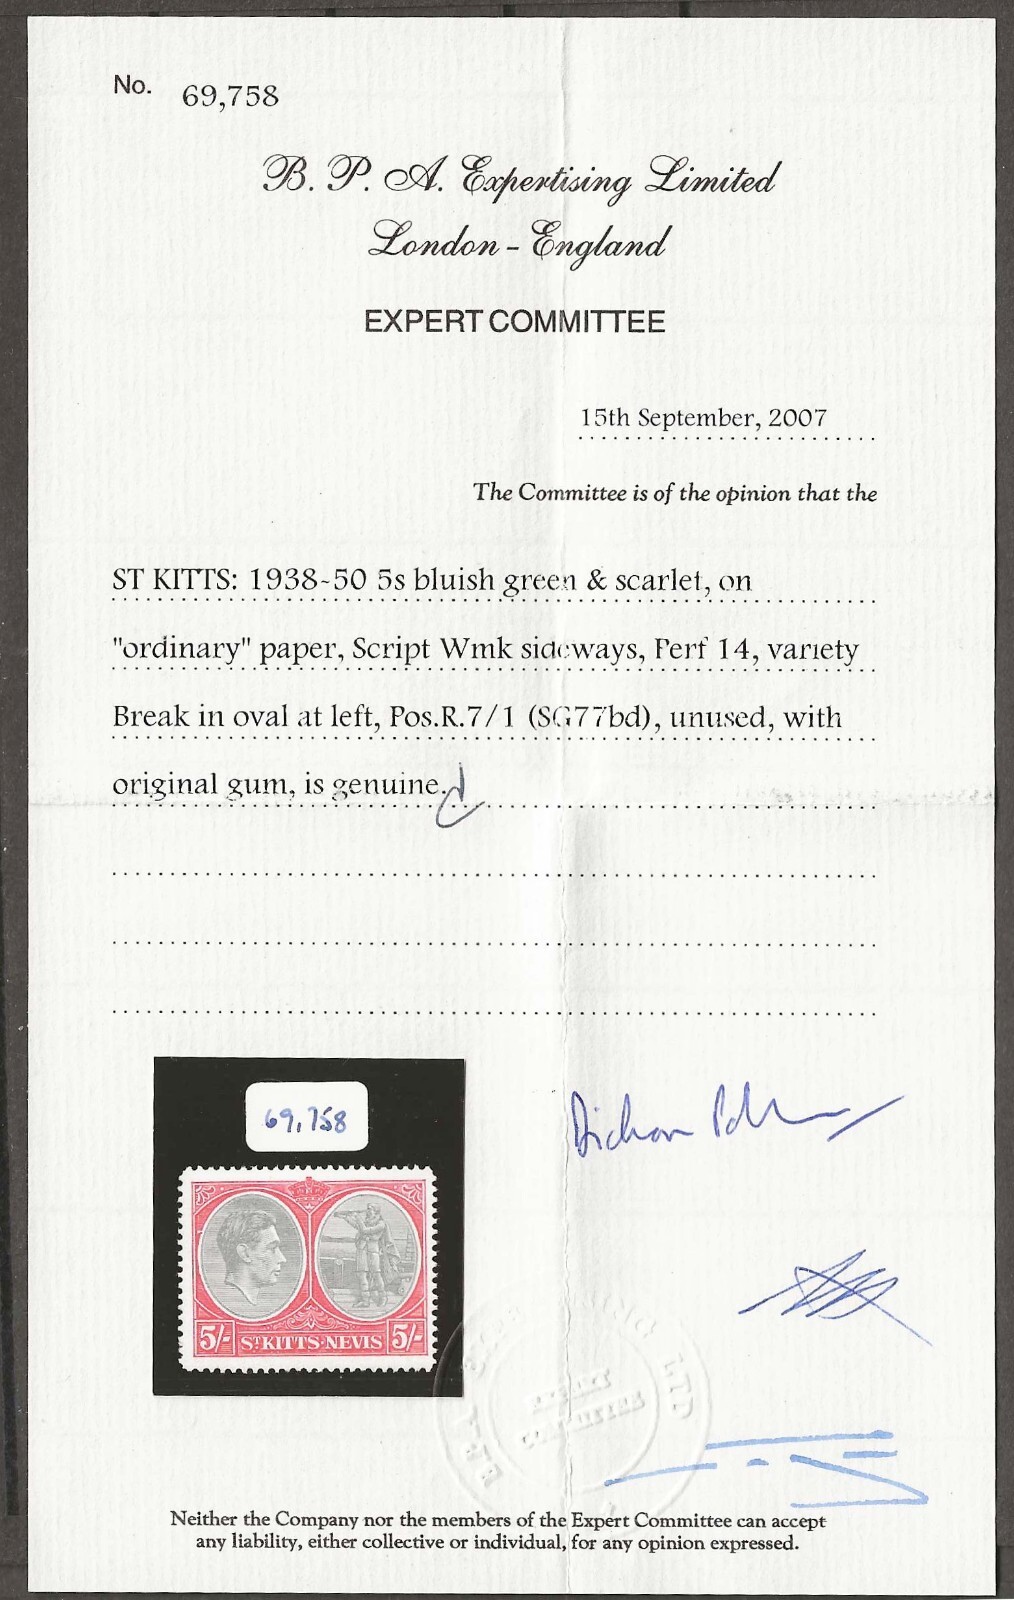 No. 69,758
B. P. A. Expertising Limited
London - England
EXPERT COMMITTEE
15th September, 2007
The Committee is of the opinion that the
ST KITTS: 1938-50 5s bluish green & scarlet, on
"ordinary" paper, Script Wmk sideways, Perf 14, variety
Break in oval at left, Pos.R.7/1 (SG77bd), unused, with
original gum, is genuine.
69,758
5/- ST KITTS·NEVIS 5/-
EXPERT
COMMITTEE
LTD
Neither the Company nor the members of the Expert Committee can accept
any liability, either collective or individual, for any opinion expressed.